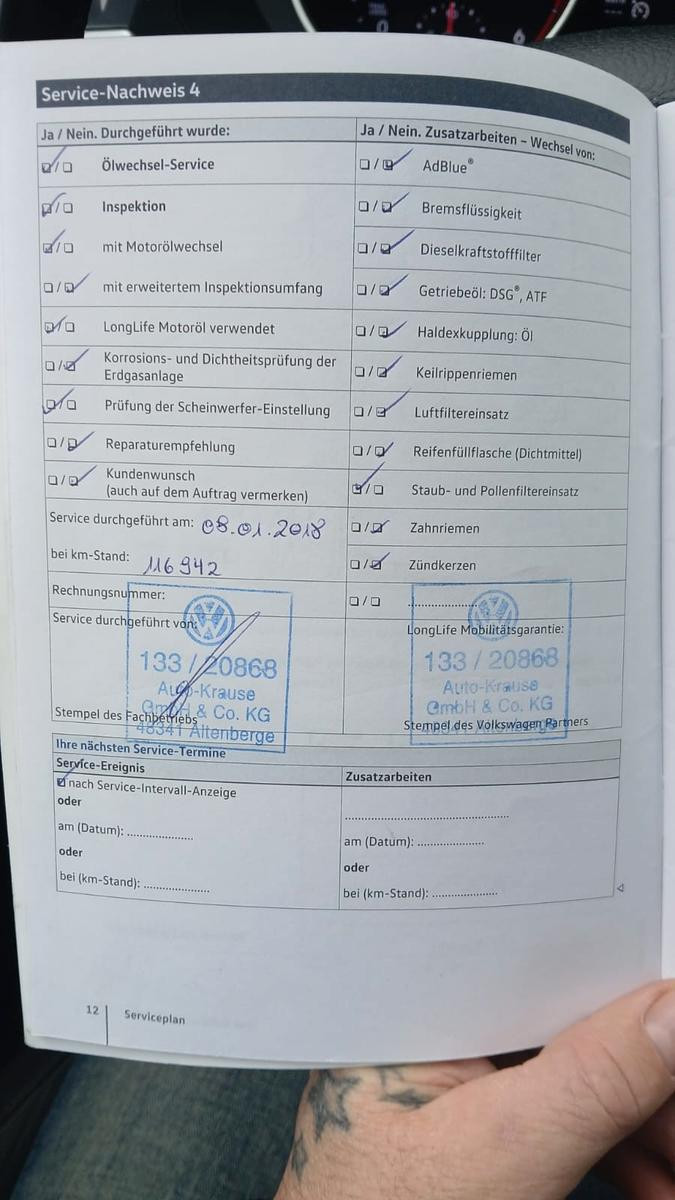 0
6
Service-Nachweis 4
Ja / Nein. Durchgeführt wurde:
☑/☐ Ölwechsel-Service
☑/☐ Inspektion
☑/☐ mit Motorölwechsel
☐/☑ mit erweitertem Inspektionsumfang
☑/☐ LongLife Motoröl verwendet
☐/☑ Korrosions- und Dichtheitsprüfung der
Erdgasanlage
☑/☐ Prüfung der Scheinwerfer-Einstellung
☐/☑ Reparaturempfehlung
☐/☑ Kundenwunsch
(auch auf dem Auftrag vermerken)
Service durchgeführt am: 08.01.2018
bei km-Stand: 116942
Rechnungsnummer:
Service durchgeführt von:
VW
133 / 20868
Auto-Krause
GmbH & Co. KG
48341 Altenberge
Stempel des Fachbetriebs
Ja / Nein. Zusatzarbeiten – Wechsel von:
☐/☑ AdBlue®
☐/☑ Bremsflüssigkeit
☐/☑ Dieselkraftstofffilter
☐/☑ Getriebeöl: DSG®, ATF
☐/☑ Haldexkupplung: Öl
☐/☑ Keilrippenriemen
☐/☑ Luftfiltereinsatz
☐/☑ Reifenfüllflasche (Dichtmittel)
☑/☐ Staub- und Pollenfiltereinsatz
☐/☑ Zahnriemen
☐/☑ Zündkerzen
☐/☐ ....................
LongLife Mobilitätsgarantie:
VW
133 / 20868
Auto-Krause
GmbH & Co. KG
Stempel des Volkswagen Partners
Ihre nächsten Service-Termine
Service-Ereignis
☑ nach Service-Intervall-Anzeige
oder
am (Datum): ..................
oder
bei (km-Stand): ..................
Zusatzarbeiten
............................................
am (Datum): ..................
oder
bei (km-Stand): ..................
12 Serviceplan